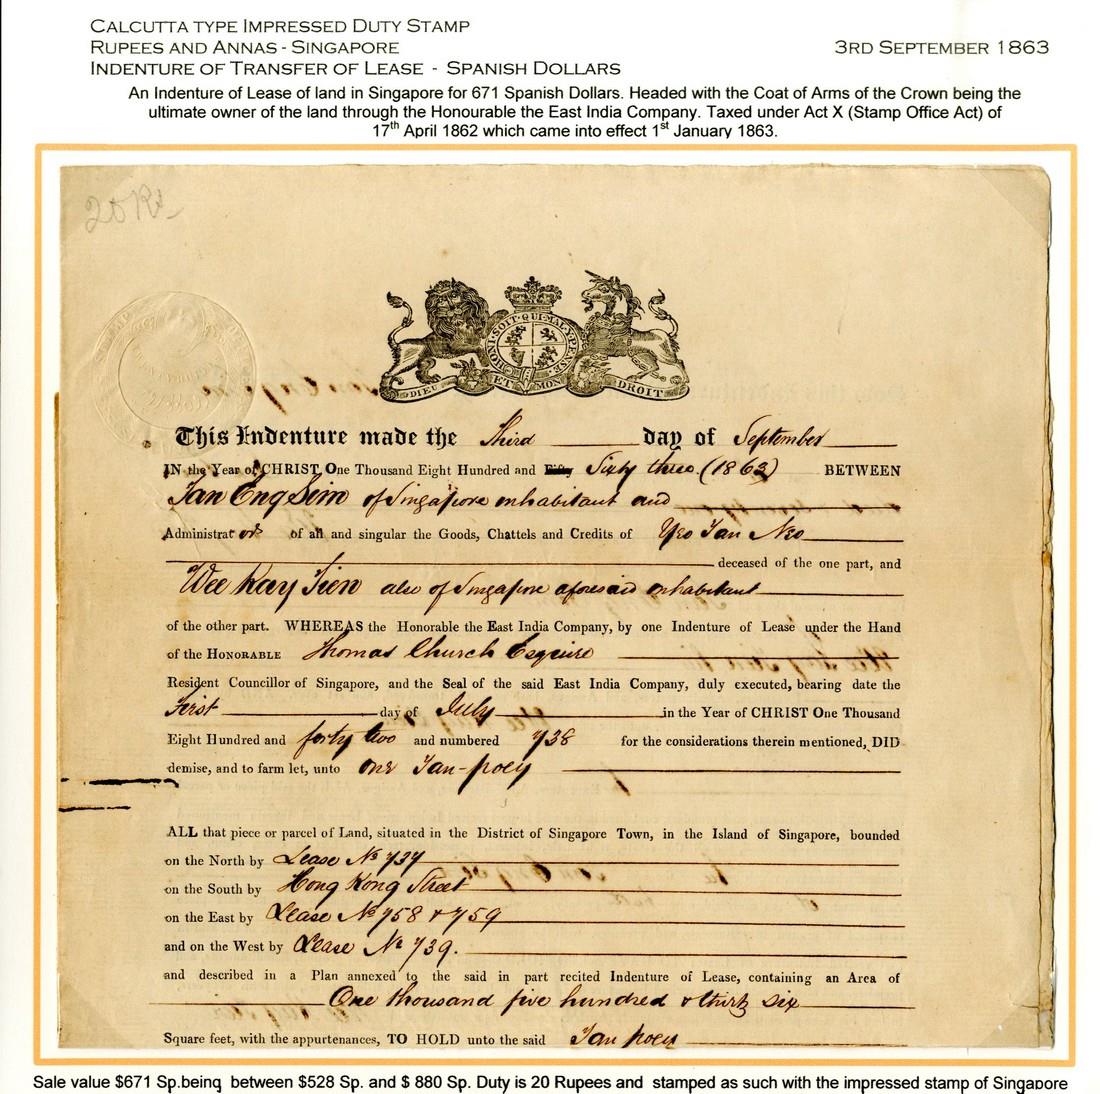 CALCUTTA TYPE IMPRESSED DUTY STAMP
RUPEES AND ANNAS - SINGAPORE
3RD SEPTEMBER 1863
INDENTURE OF TRANSFER OF LEASE - SPANISH DOLLARS
An Indenture of Lease of land in Singapore for 671 Spanish Dollars. Headed with the Coat of Arms of the Crown being the
ultimate owner of the land through the Honourable the East India Company. Taxed under Act X (Stamp Office Act) of
17th April 1862 which came into effect 1st January 1863.
20 Rs
HONI·SOIT·QUI·MAL·Y·PENSE
DIEU ET MON DROIT
This Indenture made the Third day of September
IN the Year of CHRIST One Thousand Eight Hundred and Fifty Sixty three (1863) BETWEEN
Tan Eng Sim of Singapore inhabitant and
Administrator of all and singular the Goods, Chattels and Credits of Yeo Tan Neo
deceased of the one part, and
Wee Kay Tien also of Singapore aforesaid inhabitant
of the other part. WHEREAS the Honorable the East India Company, by one Indenture of Lease under the Hand
of the HONORABLE Thomas Church Esquire
Resident Councillor of Singapore, and the Seal of the said East India Company, duly executed, bearing date the
First day of July in the Year of CHRIST One Thousand
Eight Hundred and forty two and numbered 738 for the considerations therein mentioned, DID
demise, and to farm let, unto one Tan-poey
ALL that piece or parcel of Land, situated in the District of Singapore Town, in the Island of Singapore, bounded
on the North by Lease No
on the South by Hong Kong Street
on the East by Lease No 758 & 759
and on the West by Lease No 739.
and described in a Plan annexed to the said in part recited Indenture of Lease, containing an Area of
One thousand five hundred & thirty six
Square feet, with the appurtenances, TO HOLD unto the said Tan poey
Sale value $671 Sp.being between $528 Sp. and $ 880 Sp. Duty is 20 Rupees and stamped as such with the impressed stamp of Singapore